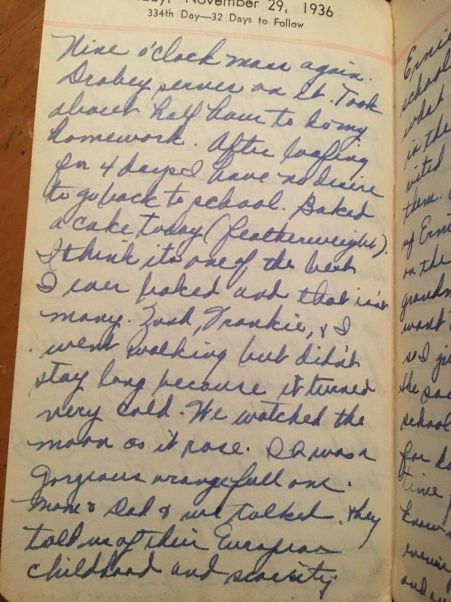 November 29, 1936
334th Day—32 Days to Follow
Nine o'clock mass again.
Drabey serves on it. Took
about half hour to do my
homework. After loafing
for 4 days I have no desire
to go back to school. Baked
a cake today (featherweight).
I think its one of the best
I ever baked and that isn't
many. Zosh, Frankie, & I
went walking but didn't
stay long because it turned
very cold. We watched the
moon as it rose. It was a
gorgeous orange full one.
Mom & Dad & we talked. They
told us of their European
childhood and scarcity
Ernie
school
what
in the
visited
them.
of Erni
on the
grandm
want
so I
She
school
for
time
know
evenin
and